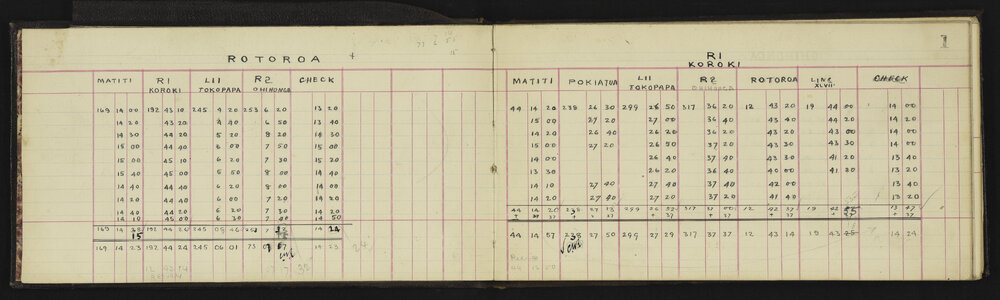 ROTOROA
MATITI R1 KOROKI LII TOKOPAPA R2 OHINONGA CHECK
169 14 00 192 43 10 245 4 20 253 6 20 13 20
14 20 43 20 4 40 6 50 13 40
14 30 44 20 5 20 8 20 14 30
15 00 44 40 6 00 7 50 15 00
15 00 45 10 6 20 7 30 15 20
15 40 45 00 5 50 8 00 14 40
14 40 44 40 6 20 8 00 14 00
14 20 44 40 6 00 7 20 14 20
14 40 44 20 6 20 7 30 14 20
14 10 44 00 6 30 7 00 14 50
169 14 192 44 20 245 05 46 14 24
15
169 14 23 192 44 24 245 06 01 14 23
24
R1
KOROKI
MATITI POKIATUA LII TOKOPAPA R2 OHINONGA ROTOROA LINE XLVII CHECK
44 14 20 238 26 30 299 26 50 317 36 20 12 43 20 19 44 00 14 00
15 00 27 20 27 00 36 40 43 40 44 20 14 20
14 20 26 40 26 20 36 20 43 20 43 00 14 00
15 00 27 20 26 50 37 20 43 30 43 30 14 20
14 00 26 40 37 40 43 30 41 20 13 40
13 30 26 20 36 40 40 00 41 20 13 40
14 10 27 40 27 40 37 40 42 00 13 40
14 20 27 40 27 20 37 20 41 40 13 20
44 14 20 238 27 13 299 26 52 317 37 00 12 42 37 19 42 13 47
+ 37 + 37 + 37 + 37 37
44 14 57 238 27 50 299 27 29 317 37 37 12 43 14 19 43 25 14 24